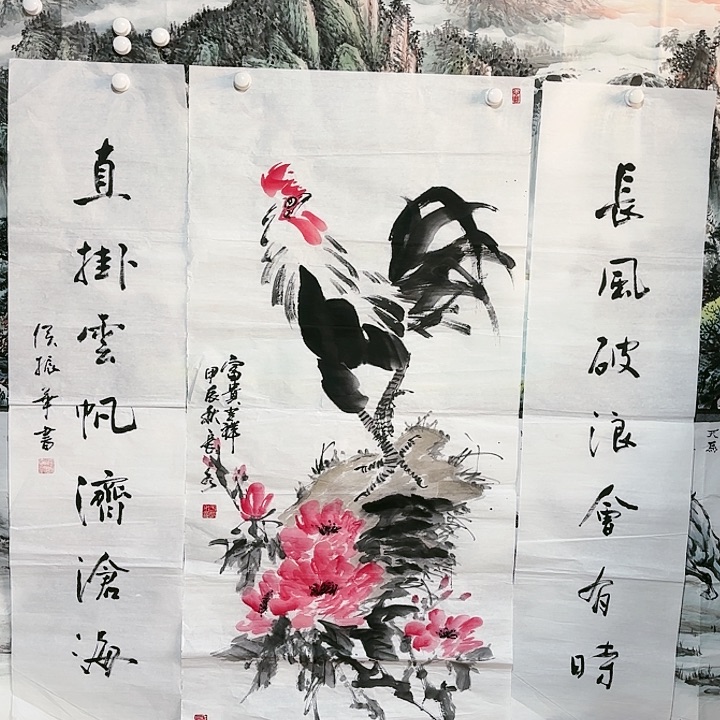 長風破浪會有時
富貴吉祥
甲辰秋長
直掛雲帆濟滄海
侯振華書